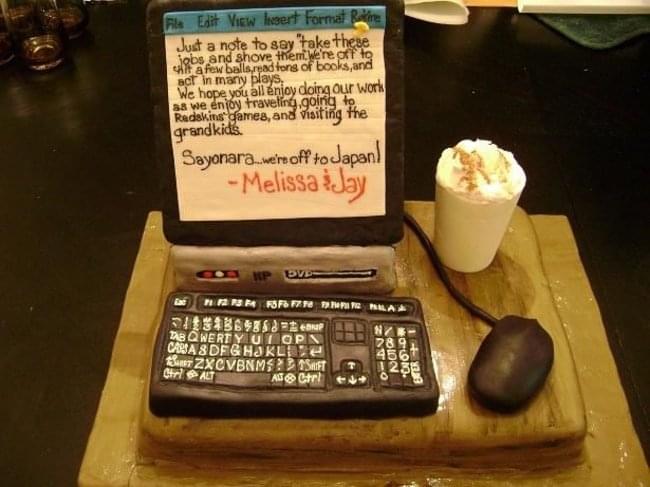 File Edit View Insert Format Refine
Just a note to say "take these
jobs and shove them. We're off to
hit a few balls, read tons of books, and
act in many plays.
We hope you all enjoy doing our work
as we enjoy traveling, going to
Redskins games, and visiting the
grandkids.
Sayonara...we're off to Japan!
- Melissa & Jay
HP DVD
Esc F1 F2 F3 F4 F5 F6 F7 F8 F9 F10 F11 F12
TAB Q W E R T Y U I O P \
CAPS A S D F G H J K L
SHIFT Z X C V B N M SHIFT
Ctrl ALT Alt Ctrl
N / * -
7 8 9 +
4 5 6
1 2 3
0